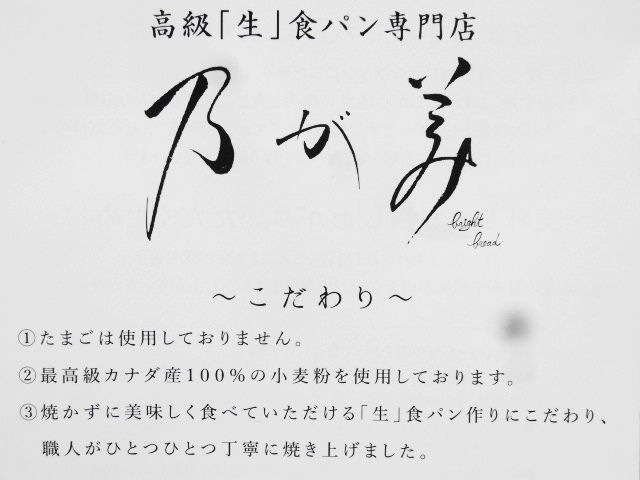 高級「生」食パン専門店
乃が美
bright
bread
～こだわり～
①たまごは使用しておりません。
②最高級カナダ産100%の小麦粉を使用しております。
③焼かずに美味しく食べていただける「生」食パン作りにこだわり、
職人がひとつひとつ丁寧に焼き上げました。